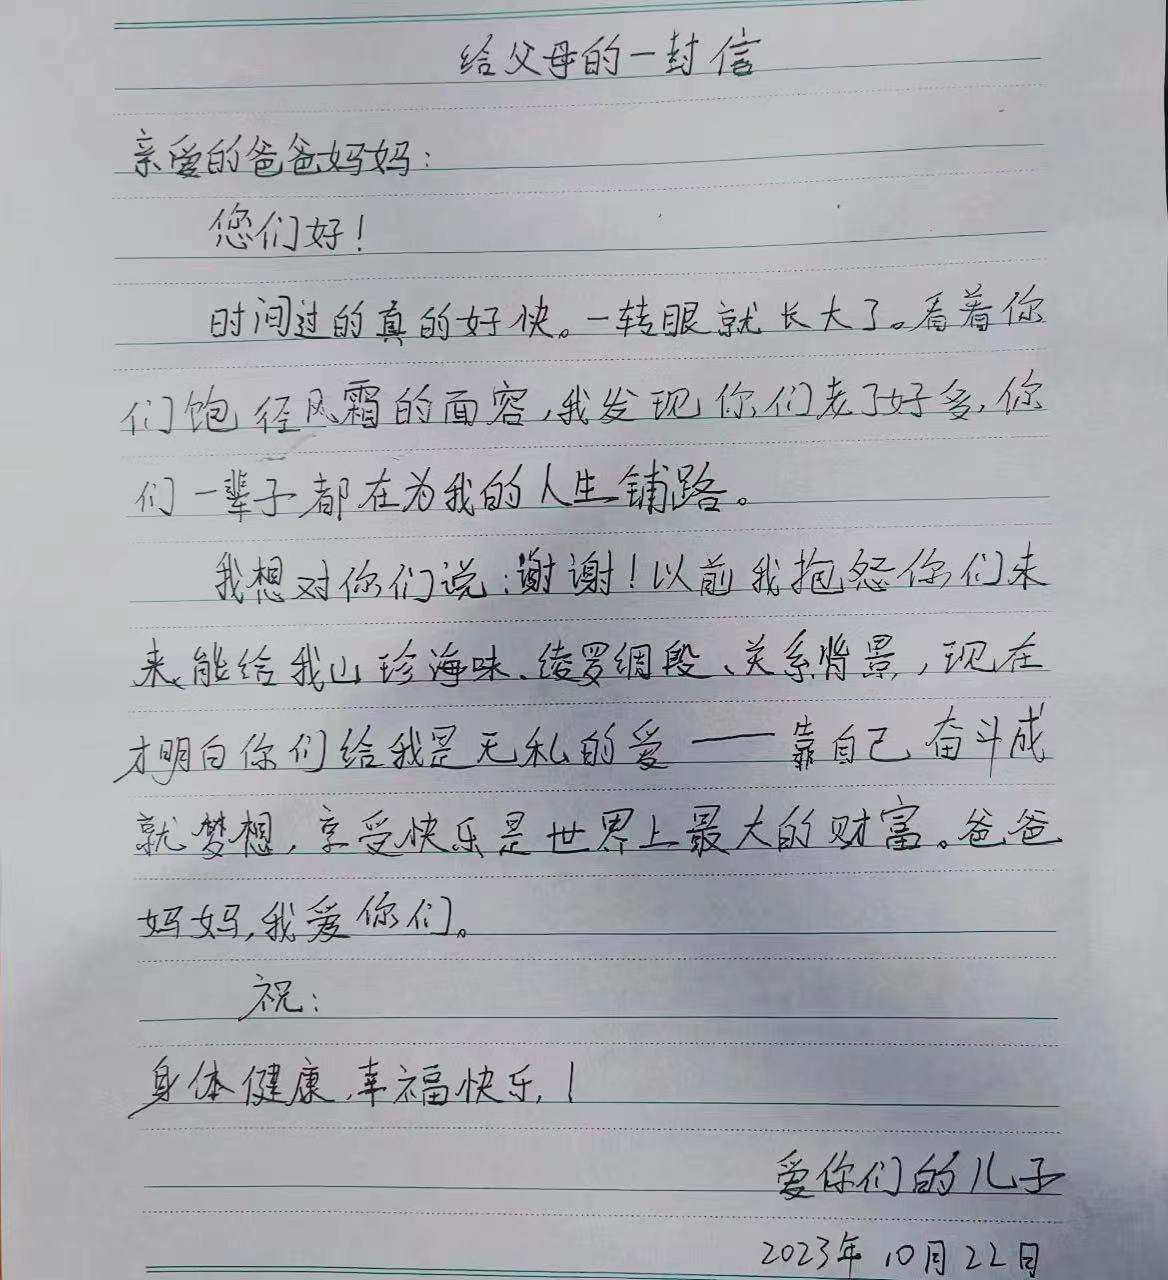 给父母的一封信
亲爱的爸爸妈妈：
您们好！
时间过的真的好快。一转眼就长大了。看着你
们饱径风霜的面容，我发现你们老了好多，你
们一辈子都在为我的人生铺路。
我想对你们说：谢谢！以前我抱怨你们未
来能给我山珍海味、绫罗绸段、关系背景，现在
才明白你们给我是无私的爱——靠自己奋斗成
就梦想，享受快乐是世界上最大的财富。爸爸
妈妈，我爱你们。
祝：
身体健康，幸福快乐！
爱你们的儿子
2023年10月22日